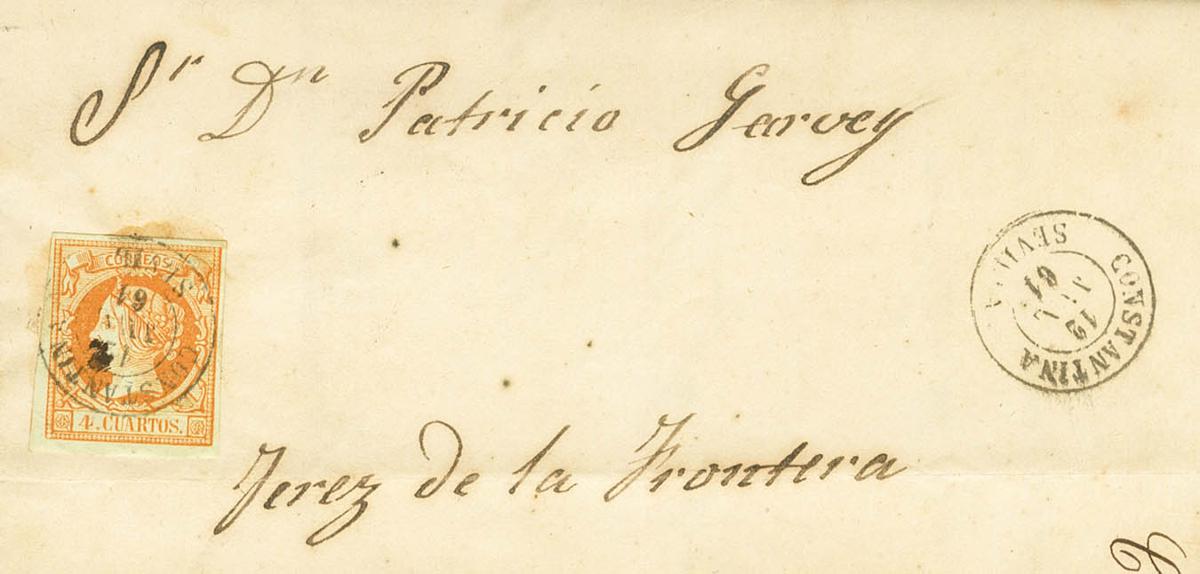 Sr Dn Patricio Garvey
CORREOS
4. CUARTOS.
CONSTANTINA
61
CONSTANTINA
12
JUL
61
SEVILLA
Jerez de la Frontera